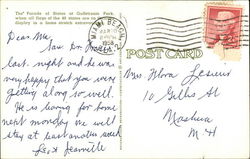 The Parade of States at Gulfstream Park,
when all flags of the 48 states are
display in a
MIAMI BEACH
1958
POST CARD
Dear Ma,
Saw Dr. Joseph
last night and he was
very happy that you were
getting along so well.
He is leaving for home
next monday. We will
stay at least another week
Love Jeanette
Mrs Flora
10 Gillis St
Nashua
N H